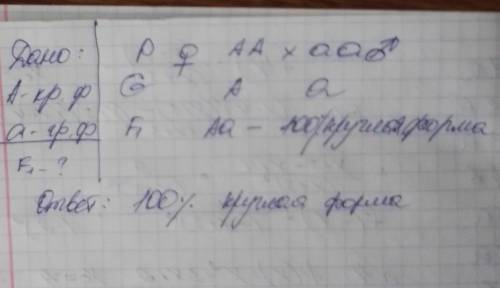 Дано: P ♀ AA × aa♂
А-кр.ф G A a
а-гр.ф F₁ Aa - 100% круглая форма
F₁-?
Ответ: 100% круглая форма